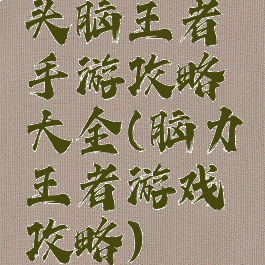 头脑王者
手游攻略
大全(脑力
王者游戏
攻略)